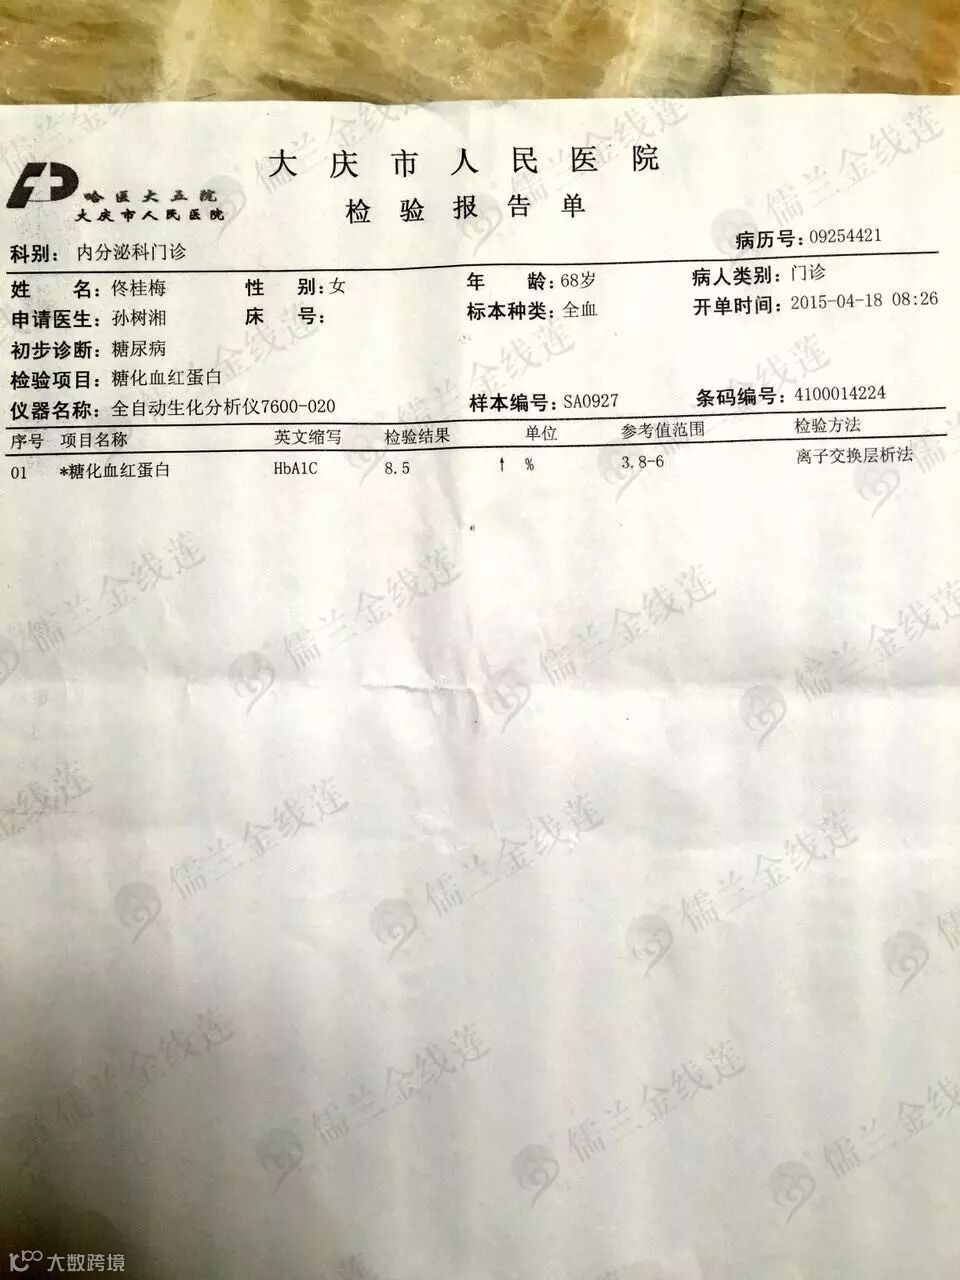 大庆市人民医院
哈医大五院
大庆市人民医院
检验报告单
科别：内分泌科门诊 病历号：09254421
姓 名：佟桂梅 性 别：女 年 龄：68岁 病人类别：门诊
申请医生：孙树湘 床 号： 标本种类：全血 开单时间：2015-04-18 08:26
初步诊断：糖尿病
检验项目：糖化血红蛋白
仪器名称：全自动生化分析仪7600-020 样本编号：SA0927 条码编号：4100014224
序号 项目名称 英文缩写 检验结果 单位 参考值范围 检验方法
01 *糖化血红蛋白 HbA1C 8.5 ↑ % 3.8-6 离子交换层析法
儒兰金线莲
大数跨境